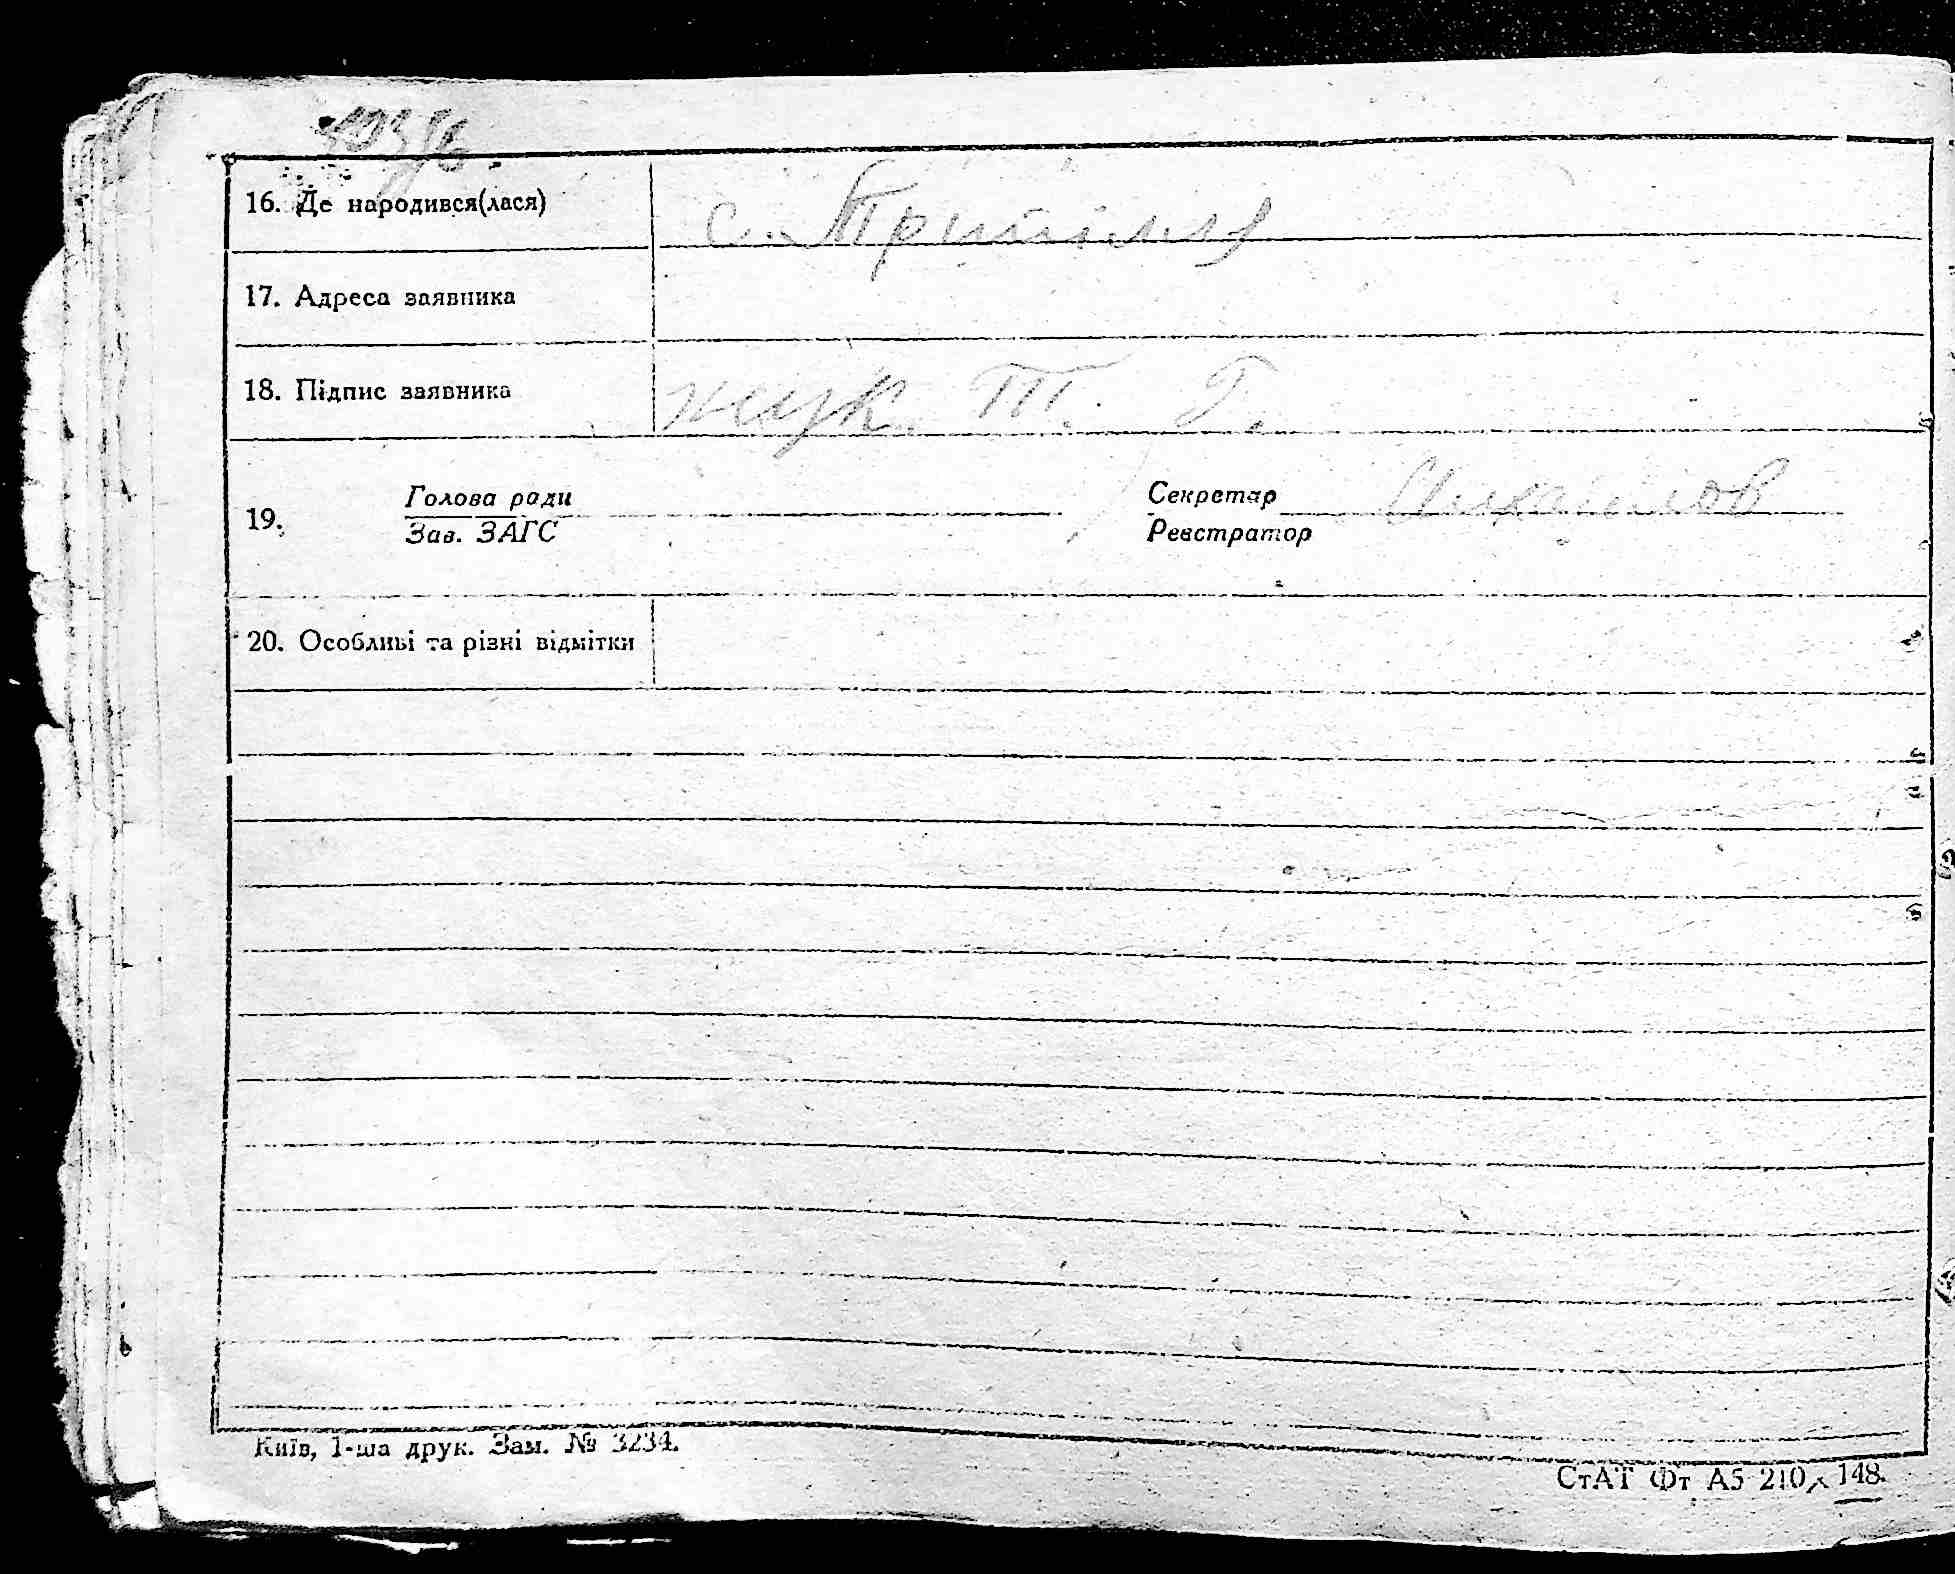 16. Де народився(лася) с. Трипілля
17. Адреса заявника
18. Підпис заявника жук. Т. Г.
19. Голова ради Секретар Михайлов
Зав. ЗАГС Реєстратор
20. Особливі та різні відмітки
Київ, 1-ша друк. Зам. № 3234.
СтАТ Фт А5 210 х 148.